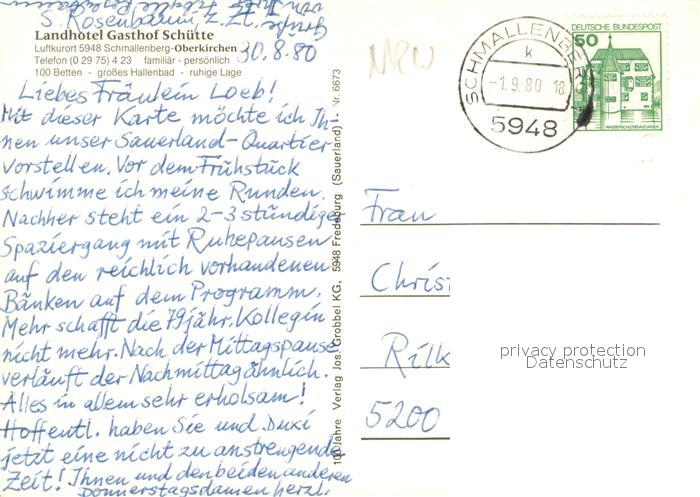 S. Rosenbaum, z. Zt.
Landhotel Gasthof Schütte
Luftkurort 5948 Schmallenberg-Oberkirchen
Telefon (0 29 75) 4 23 familiär - persönlich
100 Betten - großes Hallenbad - ruhige Lage
30.8.80
Liebes Fräulein Loeb!
Mit dieser Karte möchte ich Ih-
nen unser Sauerland-Quartier
vorstellen. Vor dem Frühstück
schwimme ich meine Runden.
Nachher steht ein 2-3 stündiger
Spaziergang mit Ruhepausen
auf den reichlich vorhandenen
Bänken auf dem Programm.
Mehr schafft die 79jähr. Kollegin
nicht mehr. Nach der Mittagspause
verläuft der Nachmittag ähnlich.
Alles in allem sehr erholsam!
Hoffentl. haben Sie und Duxi
jetzt eine nicht zu anstrengende
Zeit! Ihnen und den beiden anderen
Donnerstagsdamen herzl.
100 Jahre Verlag Jos. Grobbel KG, 5948 Fredeburg (Sauerland) Nr. 6673
NRW
SCHMALLENBERG
k
-1.9.80 18
5948
DEUTSCHE BUNDESPOST
50
WASSERSCHLOSS INZLINGEN
Frau
Chris
Rilk
5200
privacy protection
Datenschutz